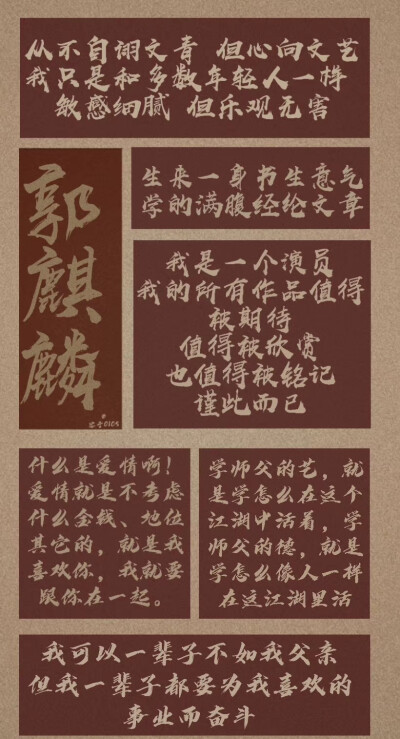 从不自诩文青 但心向文艺
我只是和多数年轻人一样
敏感细腻 但乐观无害
郭麒麟
生来一身书生意气
学的满腹经纶文章
我是一个演员
我的所有作品值得
被期待
值得被欣赏
也值得被铭记
谨此而已
什么是爱情啊！
爱情就是不考虑
什么金钱、地位
其它的，就是我
喜欢你，我就要
跟你在一起。
学师父的艺，就
是学怎么在这个
江湖中活着，学
师父的德，就是
学怎么像人一样
在这江湖里活
我可以一辈子不如我父亲
但我一辈子都要为我喜欢的
事业而奋斗